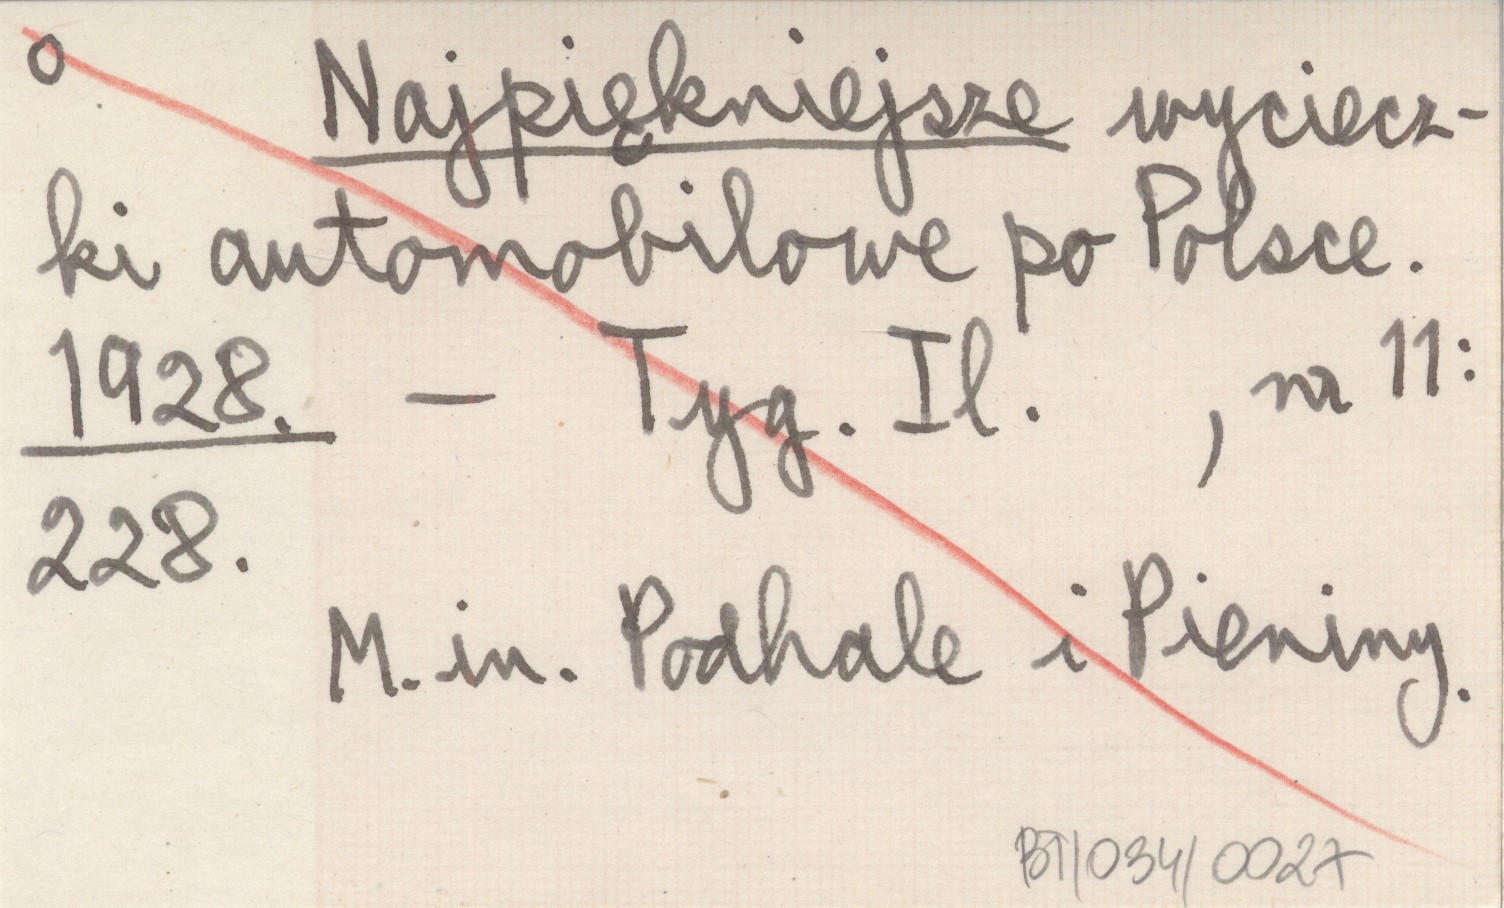 o Najpiękniejsze wyciecz-
ki automobilowe po Polsce.
1928. — Tyg. Il. , nr 11:
228.
M.in. Podhale i Pieniny.
BT/034/0027